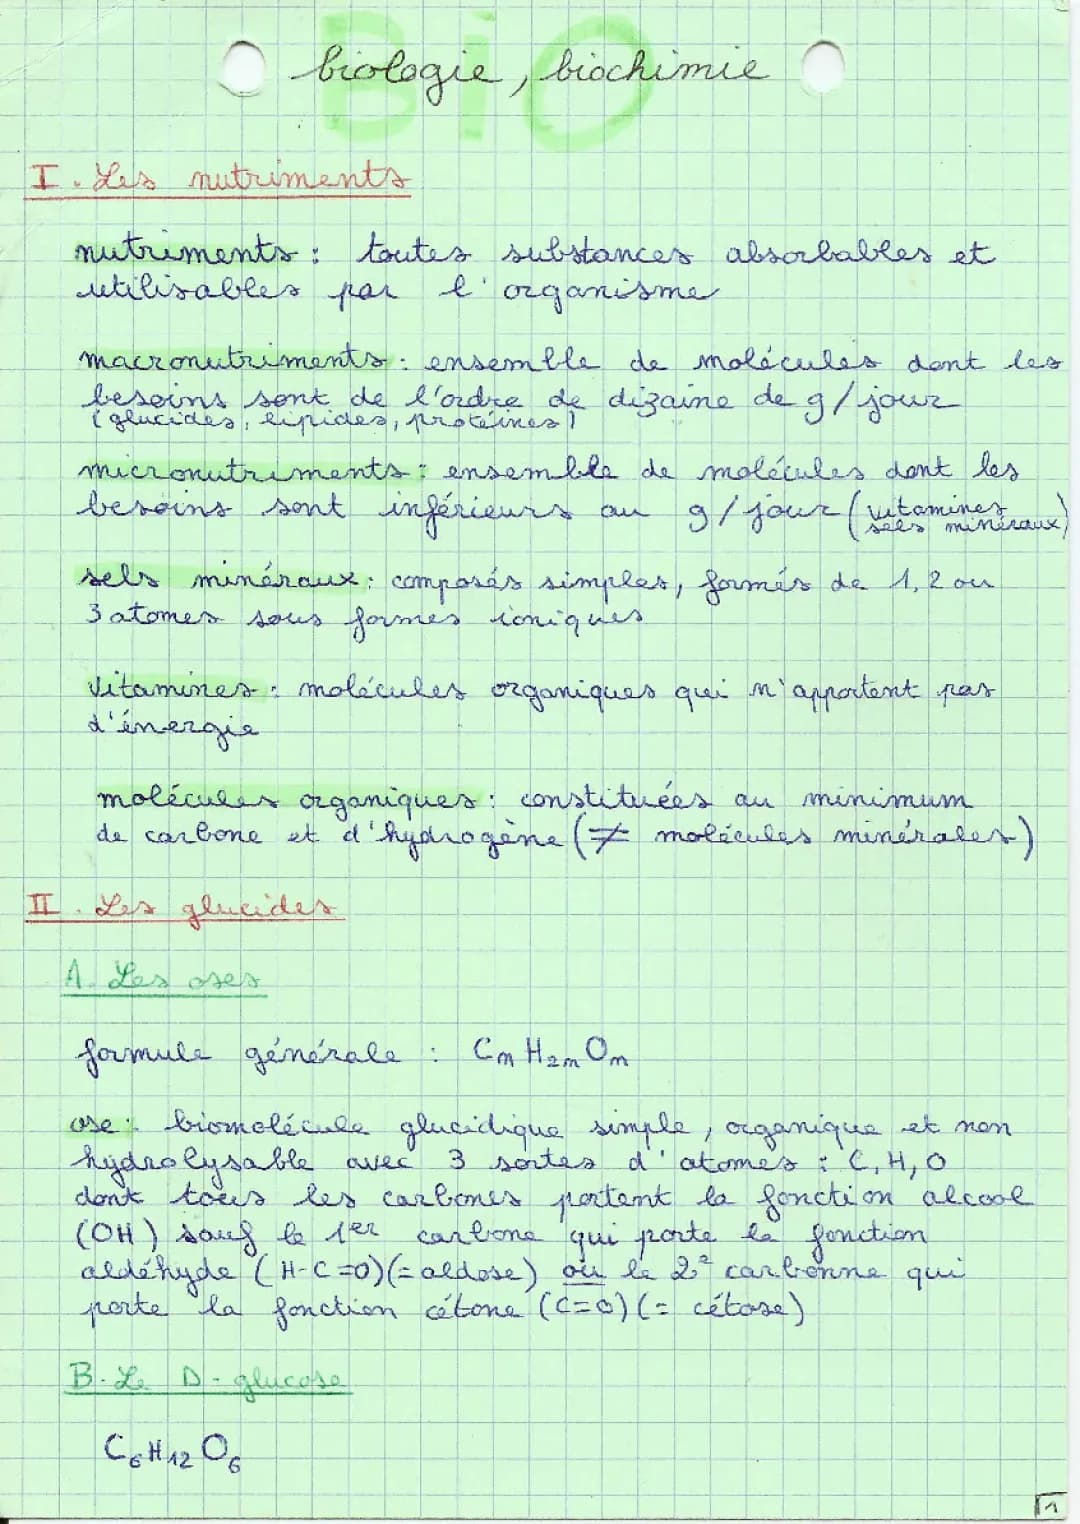 BiO
biologie, biochimie
I. Les nutriments
nutriments : toutes substances absorbables et
utilisables par l'organisme
macronutriments : ensemble de molécules dont les
besoins sont de l'ordre de dizaine de g/jour
(glucides, lipides, protéines)
micronutriments : ensemble de molécules dont les
besoins sont inférieurs au g/jour (vitamines
sels minéraux)
sels minéraux : composés simples, formés de 1, 2 ou
3 atomes sous formes ioniques
vitamines : molécules organiques qui n'apportent pas
d'énergie
molécules organiques : constituées au minimum
de carbone et d'hydrogène (≠ molécules minérales)
II. Les glucides
A. Les oses
formule générale : CnH2nOn
ose : biomolécule glucidique simple, organique et non
hydrolysable avec 3 sortes d'atomes : C, H, O
dont tous les carbones portent la fonction alcool
(OH) sauf le 1er carbone qui porte la fonction
aldéhyde (H-C=O)(= aldose) ou le 2e carbonne qui
porte la fonction cétone (C=O)(= cétose)
B. Le D-glucose
C6H12O6
1